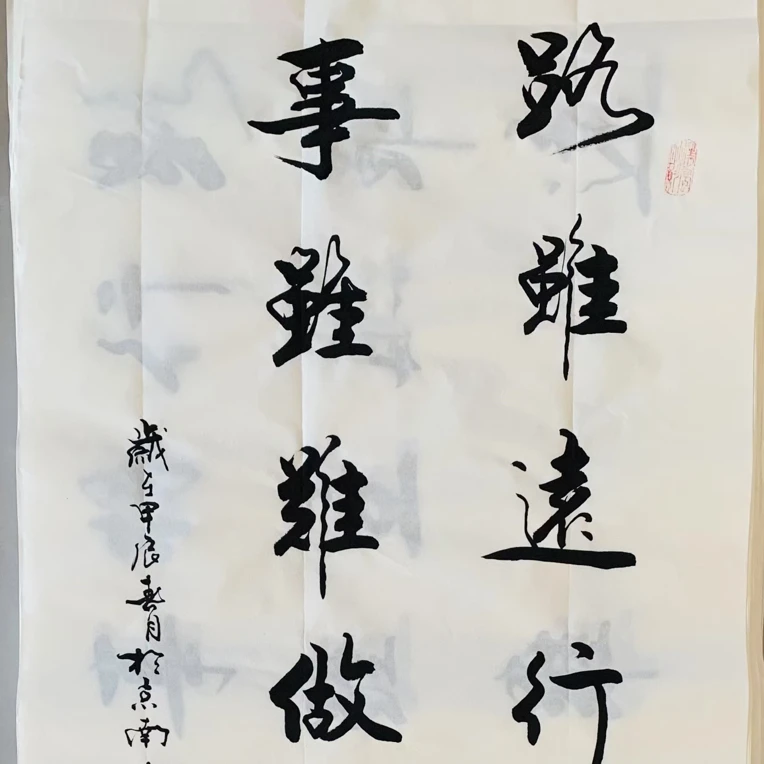 路雖遠行
事雖難做
歲在甲辰春月於京南